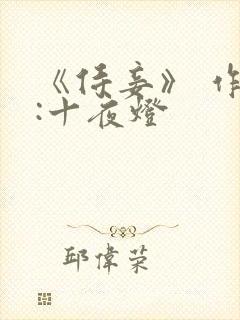 《侍妾》 作
:十夜燈
邱偉荣